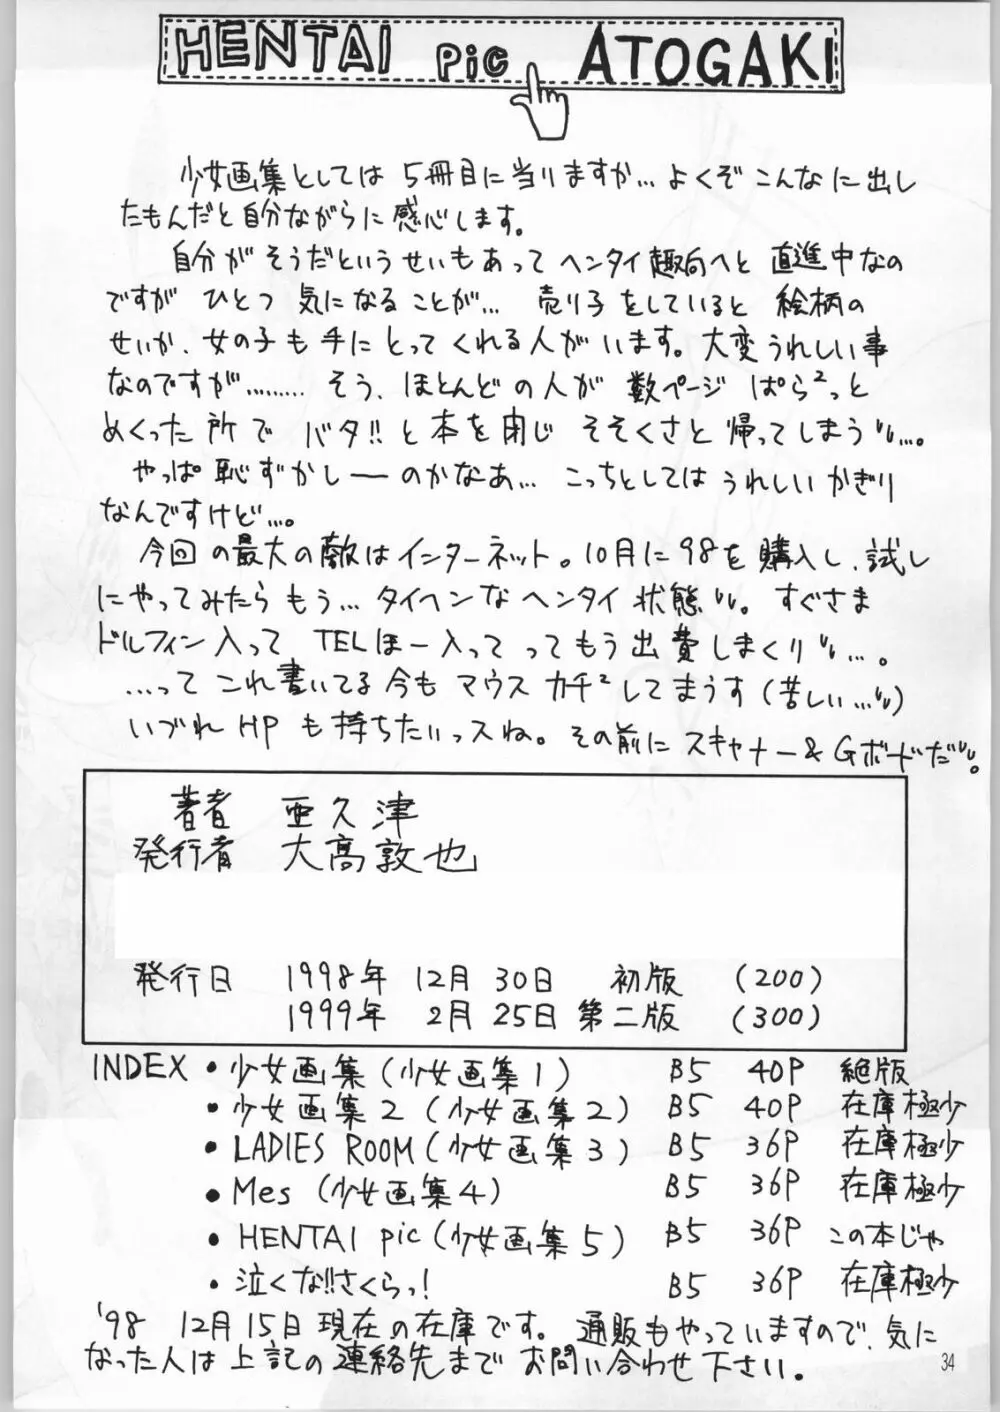 HENTAI pic ATOGAKI
少女画集としては5冊目に当りますか…よくぞこんなに出し
たもんだと自分ながらに感心します。
自分がそうだというせいもあってヘンタイ趣向へと直進中なの
ですが ひとつ 気になることが… 売り子をしていると 絵柄の
せいか、女の子も手にとってくれる人がいます。大変うれしい事
なのですが……… そう、ほとんどの人が 数ページ ぱら²っと
めくった所で バタ!!と本を閉じ そそくさと帰ってしまう〃…。
やっぱ恥ずかしーのかなあ… こっちとしてはうれしいかぎり
なんですけど…。
今回の最大の敵はインターネット。10月に98を購入し、試し
にやってみたらもう… タイヘンなヘンタイ状態〃。すぐさま
ドルフィン入って TELほー入って ってもう出費しまくり〃…。
…ってこれ書いてる今もマウスカチ²してまうす(苦しい…〃)
いづれHPも持ちたいっスね。その前にスキャナー&Gボードだ〃。
著者 亜久津
発行者 大高敦也
発行日 1998年 12月 30日 初版 (200)
1999年 2月 25日 第二版 (300)
INDEX ・少女画集(少女画集1) B5 40P 絶版
・少女画集2(少女画集2) B5 40P 在庫極少
・LADIES ROOM(少女画集3) B5 36P 在庫極少
・Mes(少女画集4) B5 36P 在庫極少
・HENTAI pic(少女画集5) B5 36P この本じゃ
・泣くな!!さくらっ! B5 36P 在庫極少
'98 12月15日現在の在庫です。通販もやっていますので、気に
なった人は上記の連絡先までお問い合わせ下さい。
34